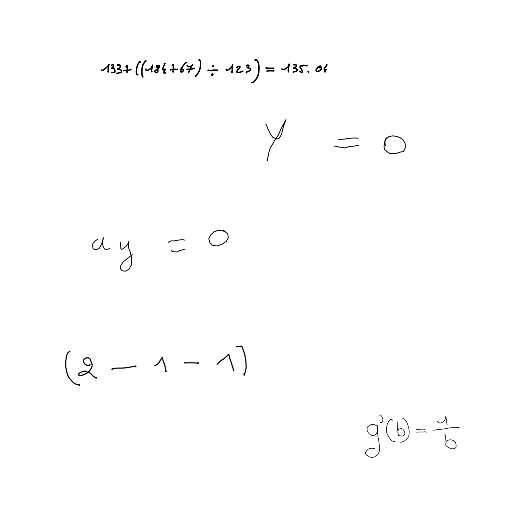 133+((184+67)÷123)=135.04
Y = 0
ay = 0
(2-1-1)
g'(b)=1/b